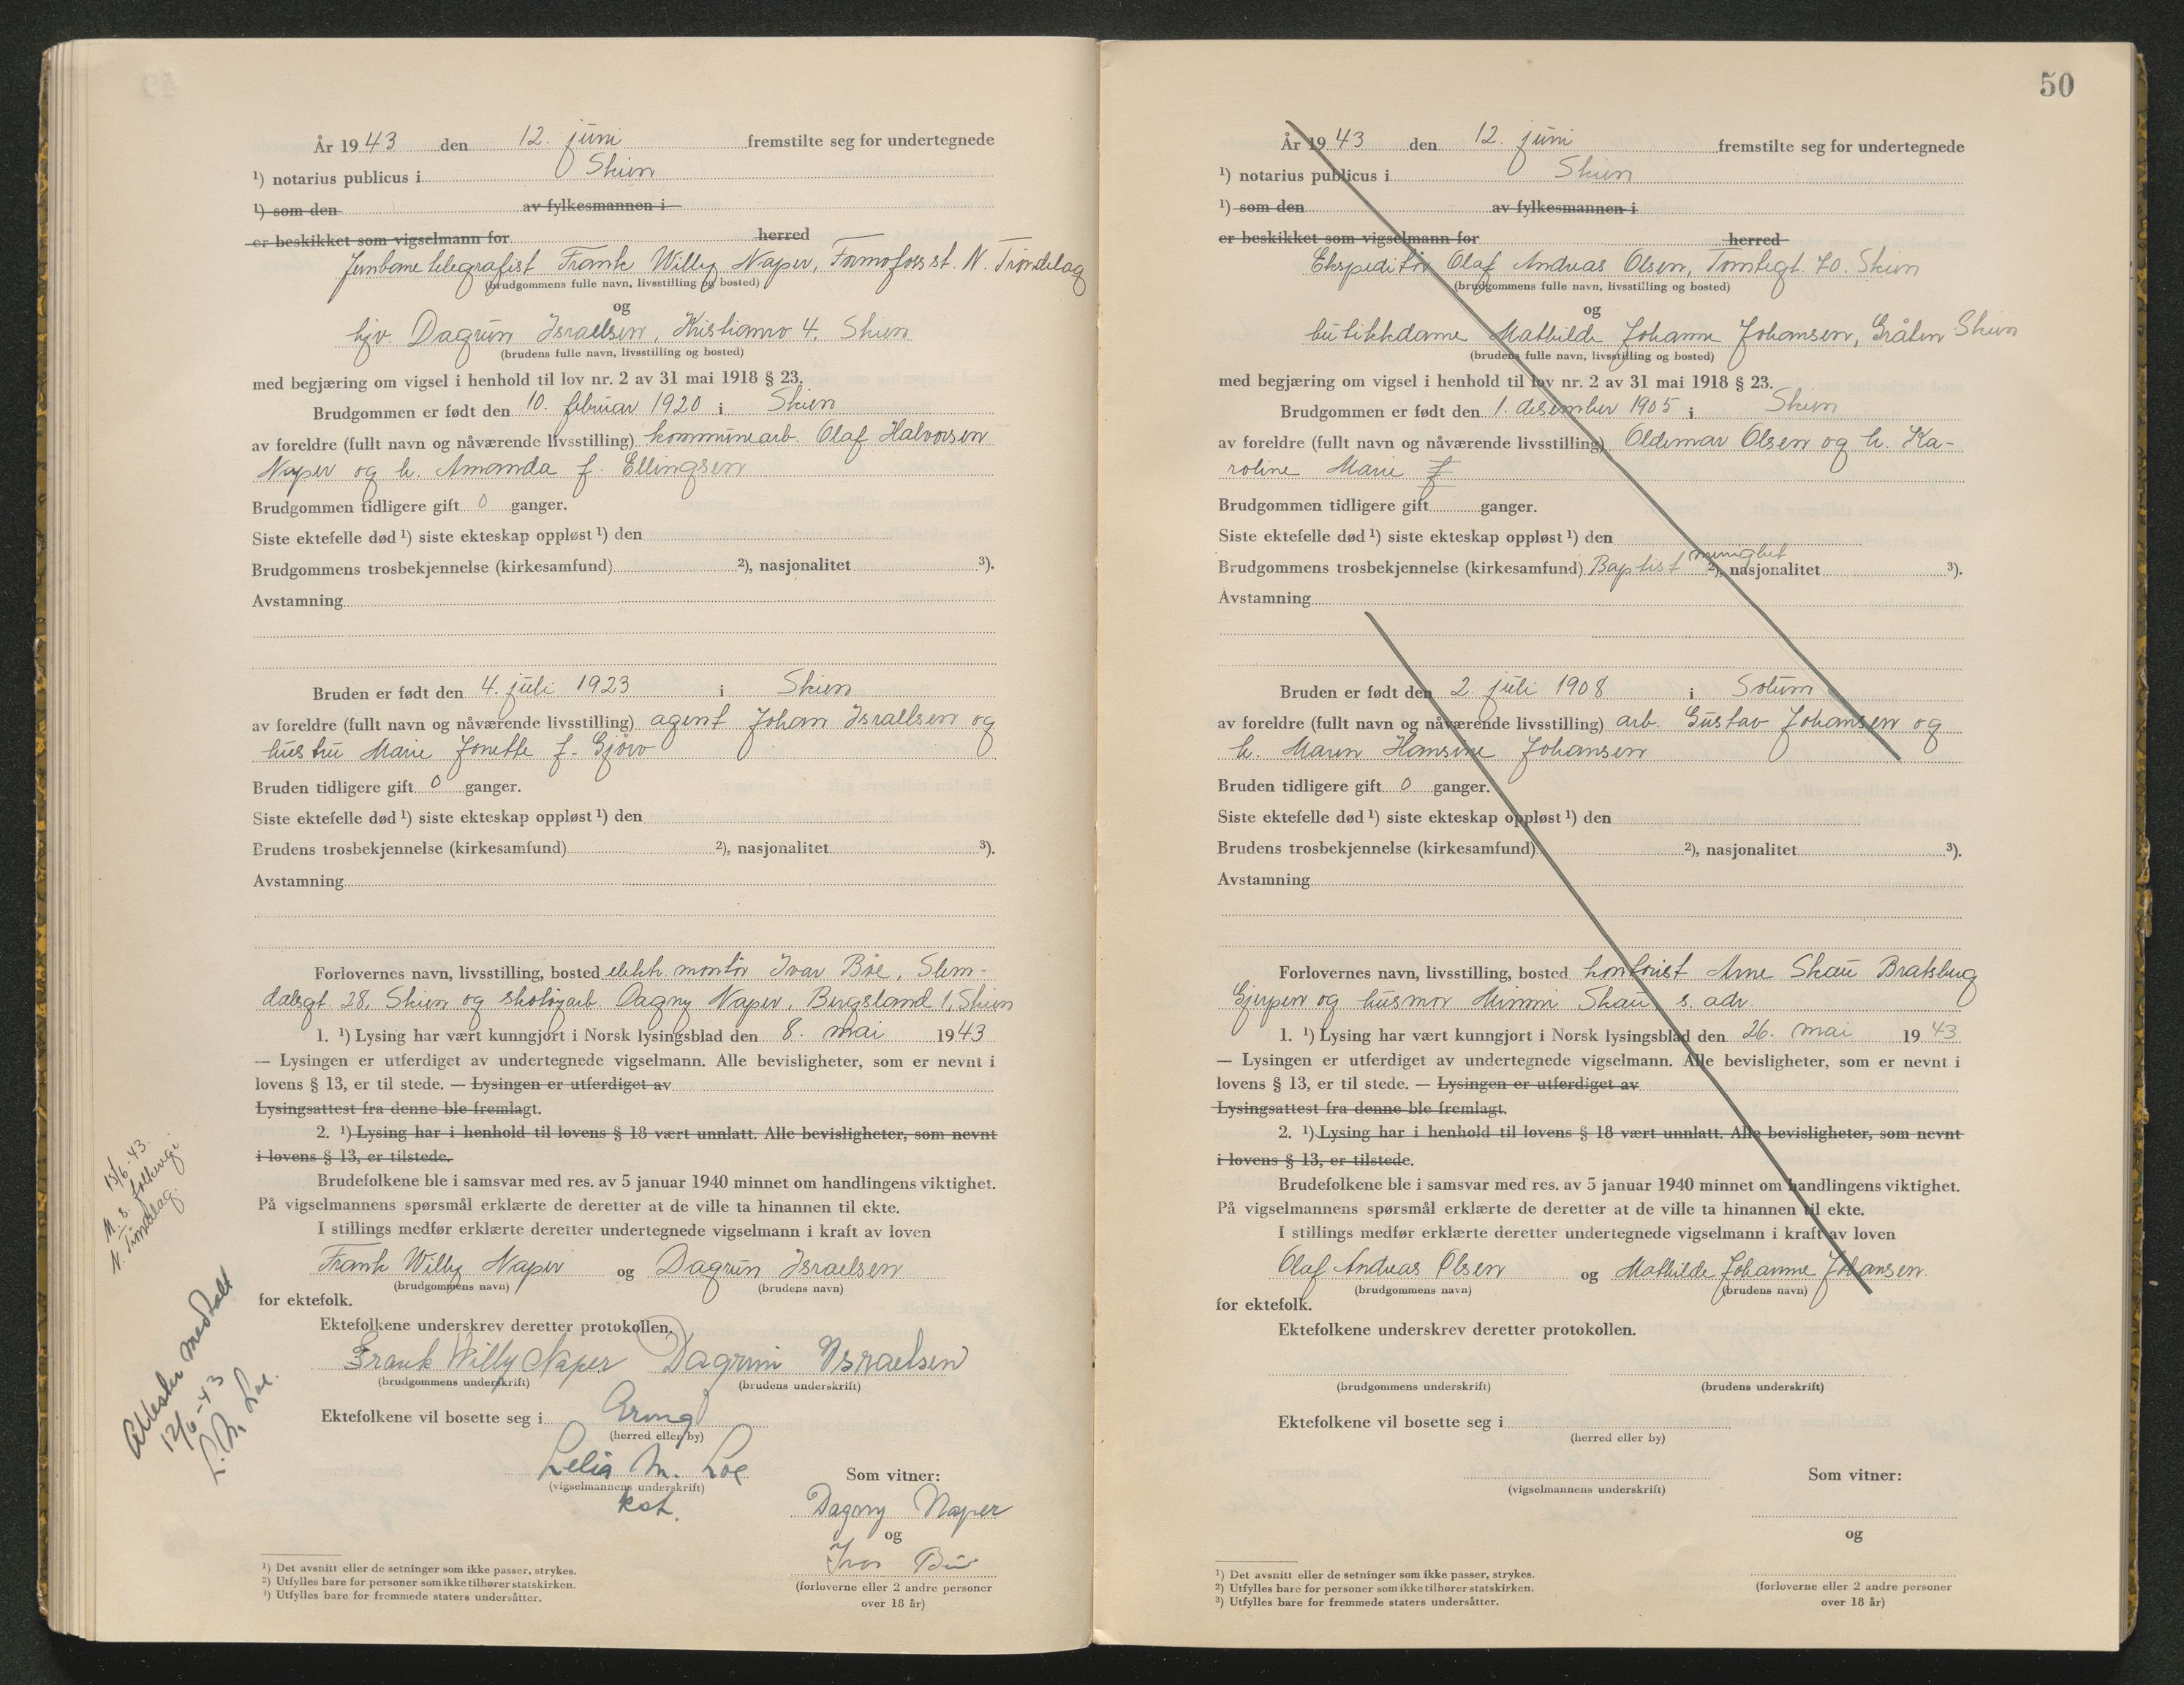 År 1943 den 12. juni fremstilte seg for undertegnede
¹) notarius publicus i Skien
¹) som den av fylkesmannen i
er beskikket som vigselmann for herred
Jernbanetelegrafist Frank Willy Naper, Formofoss st. N. Trøndelag
(brudgommens fulle navn, livsstilling og bosted)
og
hjv. Dagrun Israelsen, Kristianro 4, Skien
(brudens fulle navn, livsstilling og bosted)
med begjæring om vigsel i henhold til lov nr. 2 av 31 mai 1918 § 23.
Brudgommen er født den 10. februar 1920 i Skien
av foreldre (fullt navn og nåværende livsstilling) kommunearb. Olaf Halvorsen
Naper og h. Amanda f. Ellingsen
Brudgommen tidligere gift 0 ganger.
Siste ektefelle død ¹) siste ekteskap oppløst ¹) den
Brudgommens trosbekjennelse (kirkesamfund) ²), nasjonalitet ³).
Avstamning
Bruden er født den 4. juli 1923 i Skien
av foreldre (fullt navn og nåværende livsstilling) agent Johan Israelsen og
hustru Marie Jonette f. Gjörv
Bruden tidligere gift 0 ganger.
Siste ektefelle død ¹) siste ekteskap oppløst ¹) den
Brudens trosbekjennelse (kirkesamfund) ²), nasjonalitet ³).
Avstamning
Forlovernes navn, livsstilling, bosted elektr. montör Ivar Böe, Slem-
dalsgt. 28, Skien og skotöyarb. Dagny Naper, Bergsland 1, Skien
1. ¹) Lysing har vært kunngjort i Norsk lysingsblad den 8. mai 1943
— Lysingen er utferdiget av undertegnede vigselmann. Alle bevisligheter, som er nevnt i
lovens § 13, er til stede. — Lysingen er utferdiget av
Lysingsattest fra denne ble fremlagt.
2. ¹) Lysing har i henhold til lovens § 18 vært unnlatt. Alle bevisligheter, som nevnt
i lovens § 13, er tilstede.
Brudefolkene ble i samsvar med res. av 5 januar 1940 minnet om handlingens viktighet.
På vigselmannens spørsmål erklærte de deretter at de ville ta hinannen til ekte.
I stillings medfør erklærte deretter undertegnede vigselmann i kraft av loven
Frank Willy Naper og Dagrun Israelsen
(brudgommens navn) (brudens navn)
for ektefolk.
Ektefolkene underskrev deretter protokollen.
Frank Willy Naper Dagrun Israelsen
(brudgommens underskrift) (brudens underskrift)
Ektefolkene vil bosette seg i Grong
(herred eller by)
Lelia M. Loe
(vigselmannens underskrift)
kst.
Som vitner:
Dagny Naper
og
Ivar Böe
(forloverne eller 2 andre personer
over 18 år)
15/6-43.
M. s.
N. Tröndelag.
Attester meddelt
12/6-43
L. M. Loe.
¹) Det avsnitt eller de setninger som ikke passer, strykes.
²) Utfylles bare for personer som ikke tilhører statskirken.
³) Utfylles bare for fremmede staters undersåtter.
50
År 1943 den 12. juni fremstilte seg for undertegnede
¹) notarius publicus i Skien
¹) som den av fylkesmannen i
er beskikket som vigselmann for herred
Ekspeditör Olaf Andreas Olsen, Tomtegt. 70. Skien
(brudgommens fulle navn, livsstilling og bosted)
og
butikkdame Mathilde Johanne Johansen, Gråten Skien
(brudens fulle navn, livsstilling og bosted)
med begjæring om vigsel i henhold til lov nr. 2 av 31 mai 1918 § 23.
Brudgommen er født den 1. desember 1905 i Skien
av foreldre (fullt navn og nåværende livsstilling) Oldemar Olsen og h. Ka-
roline Marie f
Brudgommen tidligere gift ganger.
Siste ektefelle død ¹) siste ekteskap oppløst ¹) den
Brudgommens trosbekjennelse (kirkesamfund) Baptist menighet ²), nasjonalitet ³).
Avstamning
Bruden er født den 2. juli 1908 i Solum
av foreldre (fullt navn og nåværende livsstilling) arb. Gustav Johansen og
h. Maren Hansine Johansen
Bruden tidligere gift 0 ganger.
Siste ektefelle død ¹) siste ekteskap oppløst ¹) den
Brudens trosbekjennelse (kirkesamfund) ²), nasjonalitet ³).
Avstamning
Forlovernes navn, livsstilling, bosted kontorist Arne Skau Bratsberg
Gjerpen og husmor Mimmi Skau s. adr.
1. ¹) Lysing har vært kunngjort i Norsk lysingsblad den 26. mai 1943
— Lysingen er utferdiget av undertegnede vigselmann. Alle bevisligheter, som er nevnt i
lovens § 13, er til stede. — Lysingen er utferdiget av
Lysingsattest fra denne ble fremlagt.
2. ¹) Lysing har i henhold til lovens § 18 vært unnlatt. Alle bevisligheter, som nevnt
i lovens § 13, er tilstede.
Brudefolkene ble i samsvar med res. av 5 januar 1940 minnet om handlingens viktighet.
På vigselmannens spørsmål erklærte de deretter at de ville ta hinannen til ekte.
I stillings medfør erklærte deretter undertegnede vigselmann i kraft av loven
Olaf Andreas Olsen og Mathilde Johanne Johansen.
(brudgommens navn) (brudens navn)
for ektefolk.
Ektefolkene underskrev deretter protokollen.
(brudgommens underskrift) (brudens underskrift)
Ektefolkene vil bosette seg i
(herred eller by)
(vigselmannens underskrift)
Som vitner:
og
(forloverne eller 2 andre personer
over 18 år)
¹) Det avsnitt eller de setninger som ikke passer, strykes.
²) Utfylles bare for personer som ikke tilhører statskirken.
³) Utfylles bare for fremmede staters undersåtter.